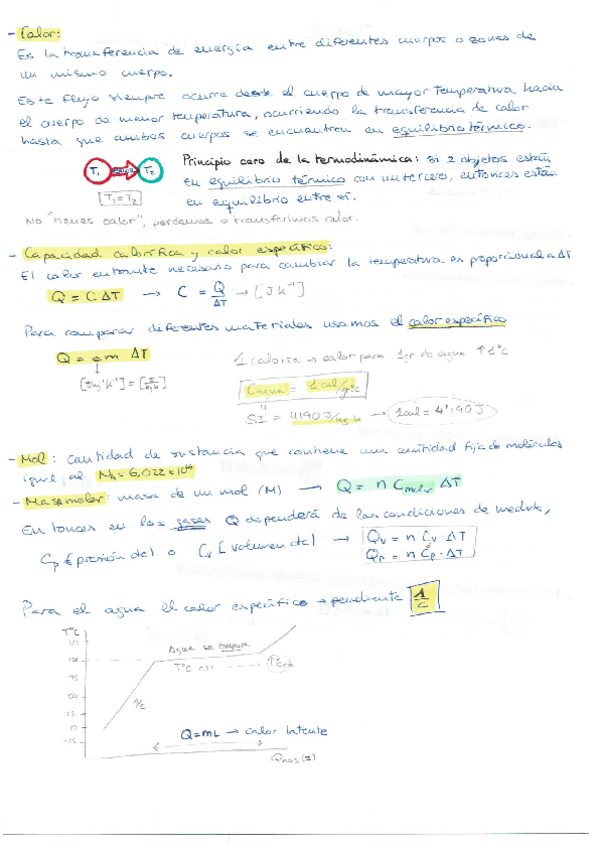 - Calor:
Es la transferencia de energía entre diferentes cuerpos o zonas de
un mismo cuerpo.
Este flujo siempre ocurre desde el cuerpo de mayor temperatura hacia
el cuerpo de menor temperatura, ocurriendo la transferencia de calor
hasta que ambos cuerpos se encuentren en equilibrio térmico.
T₁ T₂ Principio cero de la termodinámica: si 2 objetos están
en equilibrio térmico con un tercero, entonces están
T₁ = T₂ en equilibrio entre sí.
No "tienes calor", perdemos o transferimos calor.
- Capacidad calorífica y calor específico:
El calor entrante necesario para cambiar la temperatura es proporcional a ΔT
Q = C ΔT → C = Q/ΔT → [J k⁻¹]
Para comparar diferentes materiales usamos el calor específico
Q = c m ΔT 1 caloría → calor para 1gr de agua ↑ 1°C
[J kg⁻¹ k⁻¹] = [J/kg k] Cagua = 1 cal/g°C
SI = 4190 J/kg k → 1 cal = 4'190 J
- Mol: cantidad de sustancia que contiene una cantidad fija de moléculas
igual al
- Masa molar: masa de un mol (M) → Q = n Cmolar ΔT
Entonces en los gases Q dependerá de las condiciones de medida,
Cp (presión cte) o Cv [volumen cte] → Qv = n Cv · ΔT
Qp = n Cp · ΔT
Para el agua el calor específico → pendiente 1/C
T°C
100 Agua se evapora
75 T°C cte
50 1/C
0
-25
Q = mL → calor latente